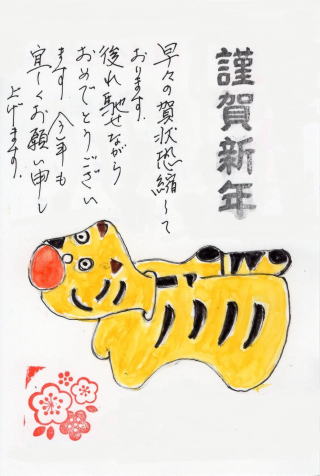 謹賀新年
早々の賀状恐縮して
おります。
後れ馳せながら
おめでとうござい
ます 今年も
宜しくお願い申し
上げます。